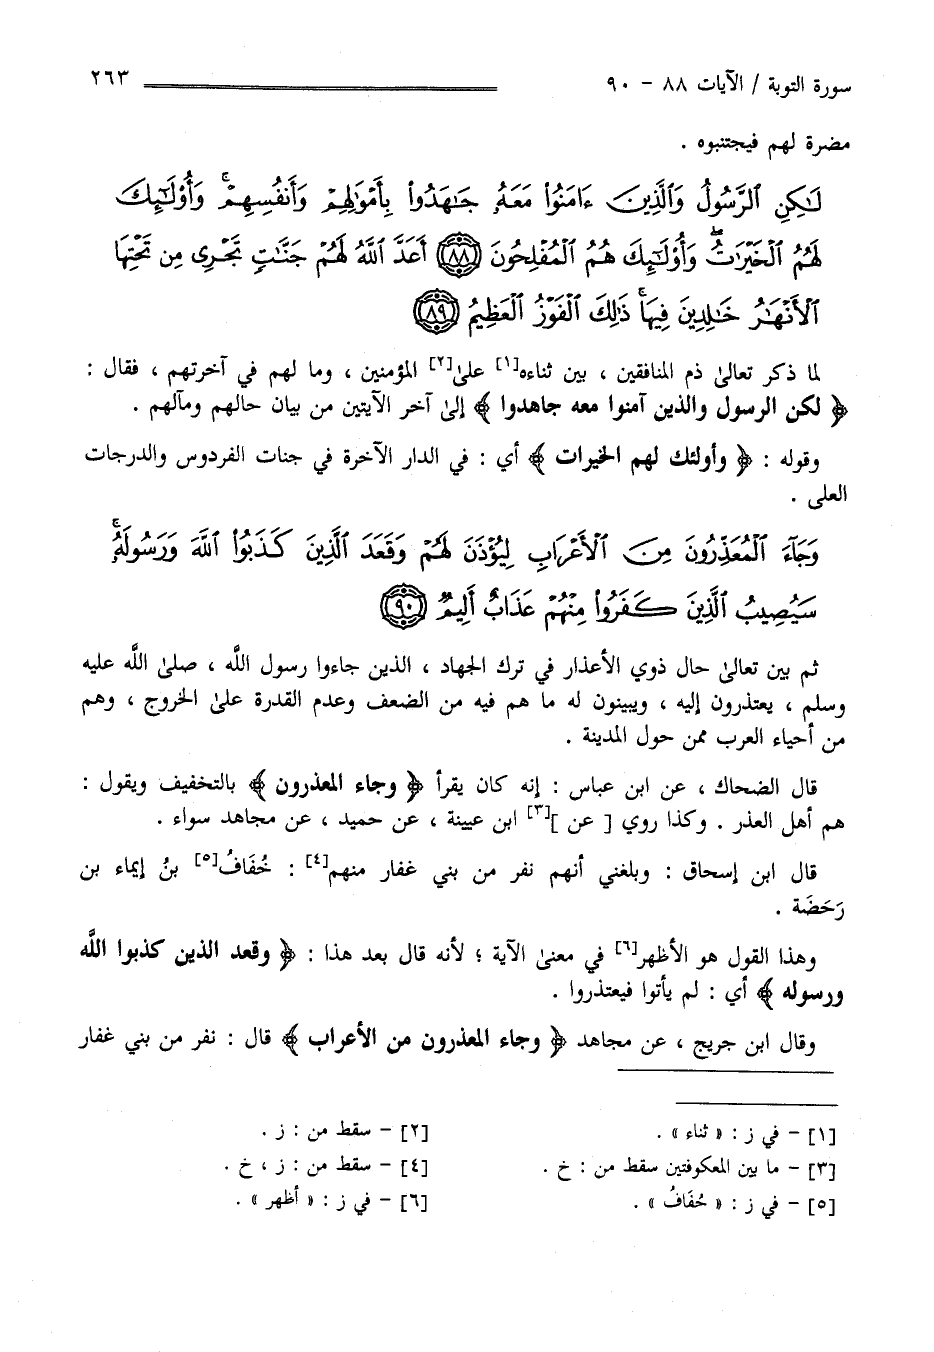 سورة التوبة / الآيات ٨٨ - ٩٠
٢٦٣
مضرة لهم فيجتنبوه .
لَٰكِنِ ٱلرَّسُولُ وَٱلَّذِينَ ءَامَنُوا۟ مَعَهُۥ جَٰهَدُوا۟ بِأَمْوَٰلِهِمْ وَأَنفُسِهِمْ ۚ وَأُو۟لَٰٓئِكَ
لَهُمُ ٱلْخَيْرَٰتُ ۖ وَأُو۟لَٰٓئِكَ هُمُ ٱلْمُفْلِحُونَ ٨٨ أَعَدَّ ٱللَّهُ لَهُمْ جَنَّٰتٍ تَجْرِى مِن تَحْتِهَا
ٱلْأَنْهَٰرُ خَٰلِدِينَ فِيهَا ۚ ذَٰلِكَ ٱلْفَوْزُ ٱلْعَظِيمُ ٨٩
لما ذكر تعالىٰ ذم المنافقين ، بين ثناءه[١] علىٰ[٢] المؤمنين ، وما لهم في آخرتهم ، فقال :
﴿ لكن الرسول والذين آمنوا معه جاهدوا ﴾ إلىٰ آخر الآيتين من بيان حالهم ومآلهم .
وقوله : ﴿ وأولئك لهم الخيرات ﴾ أي : في الدار الآخرة في جنات الفردوس والدرجات
العلى .
وَجَآءَ ٱلْمُعَذِّرُونَ مِنَ ٱلْأَعْرَابِ لِيُؤْذَنَ لَهُمْ وَقَعَدَ ٱلَّذِينَ كَذَبُوا۟ ٱللَّهَ وَرَسُولَهُۥ ۚ
سَيُصِيبُ ٱلَّذِينَ كَفَرُوا۟ مِنْهُمْ عَذَابٌ أَلِيمٌ ٩٠
ثم بين تعالىٰ حال ذوي الأعذار في ترك الجهاد ، الذين جاءوا رسول اللَّه ، صلىٰ اللَّه عليه
وسلم ، يعتذرون إليه ، ويبينون له ما هم فيه من الضعف وعدم القدرة علىٰ الخروج ، وهم
من أحياء العرب ممن حول المدينة .
قال الضحاك ، عن ابن عباس : إنه كان يقرأ ﴿ وجاء المعذرون ﴾ بالتخفيف ويقول :
هم أهل العذر . وكذا روي [ عن ][٣] ابن عيينة ، عن حميد ، عن مجاهد سواء .
قال ابن إسحاق : وبلغني أنهم نفر من بني غفار منهم[٤] : خُفَافُ[٥] بنُ إيماء بن
رَحَضَة .
وهذا القول هو الأظهر[٦] في معنىٰ الآية ؛ لأنه قال بعد هذا : ﴿ وقعد الذين كذبوا اللَّه
ورسوله ﴾ أي : لم يأتوا فيعتذروا .
وقال ابن جريج ، عن مجاهد ﴿ وجاء المعذرون من الأعراب ﴾ قال : نفر من بني غفار
[١] - في ز : « ثناء » .
[٢] - سقط من : ز .
[٣] - ما بين المعكوفتين سقط من : خ .
[٤] - سقط من : ز ، خ .
[٥] - في ز : « حُفَافُ » .
[٦] - في ز : « أظهر » .